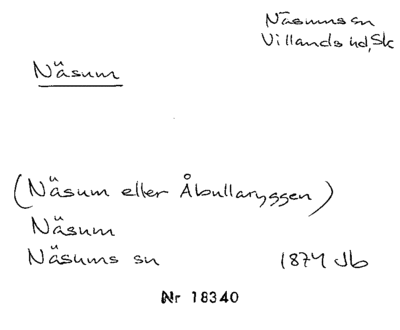 Näsums sn
Villands hd, Sk
Näsum
(Näsum eller Åbullaryggen)
Näsum
Näsums sn 1874 Jb
Nr 18340